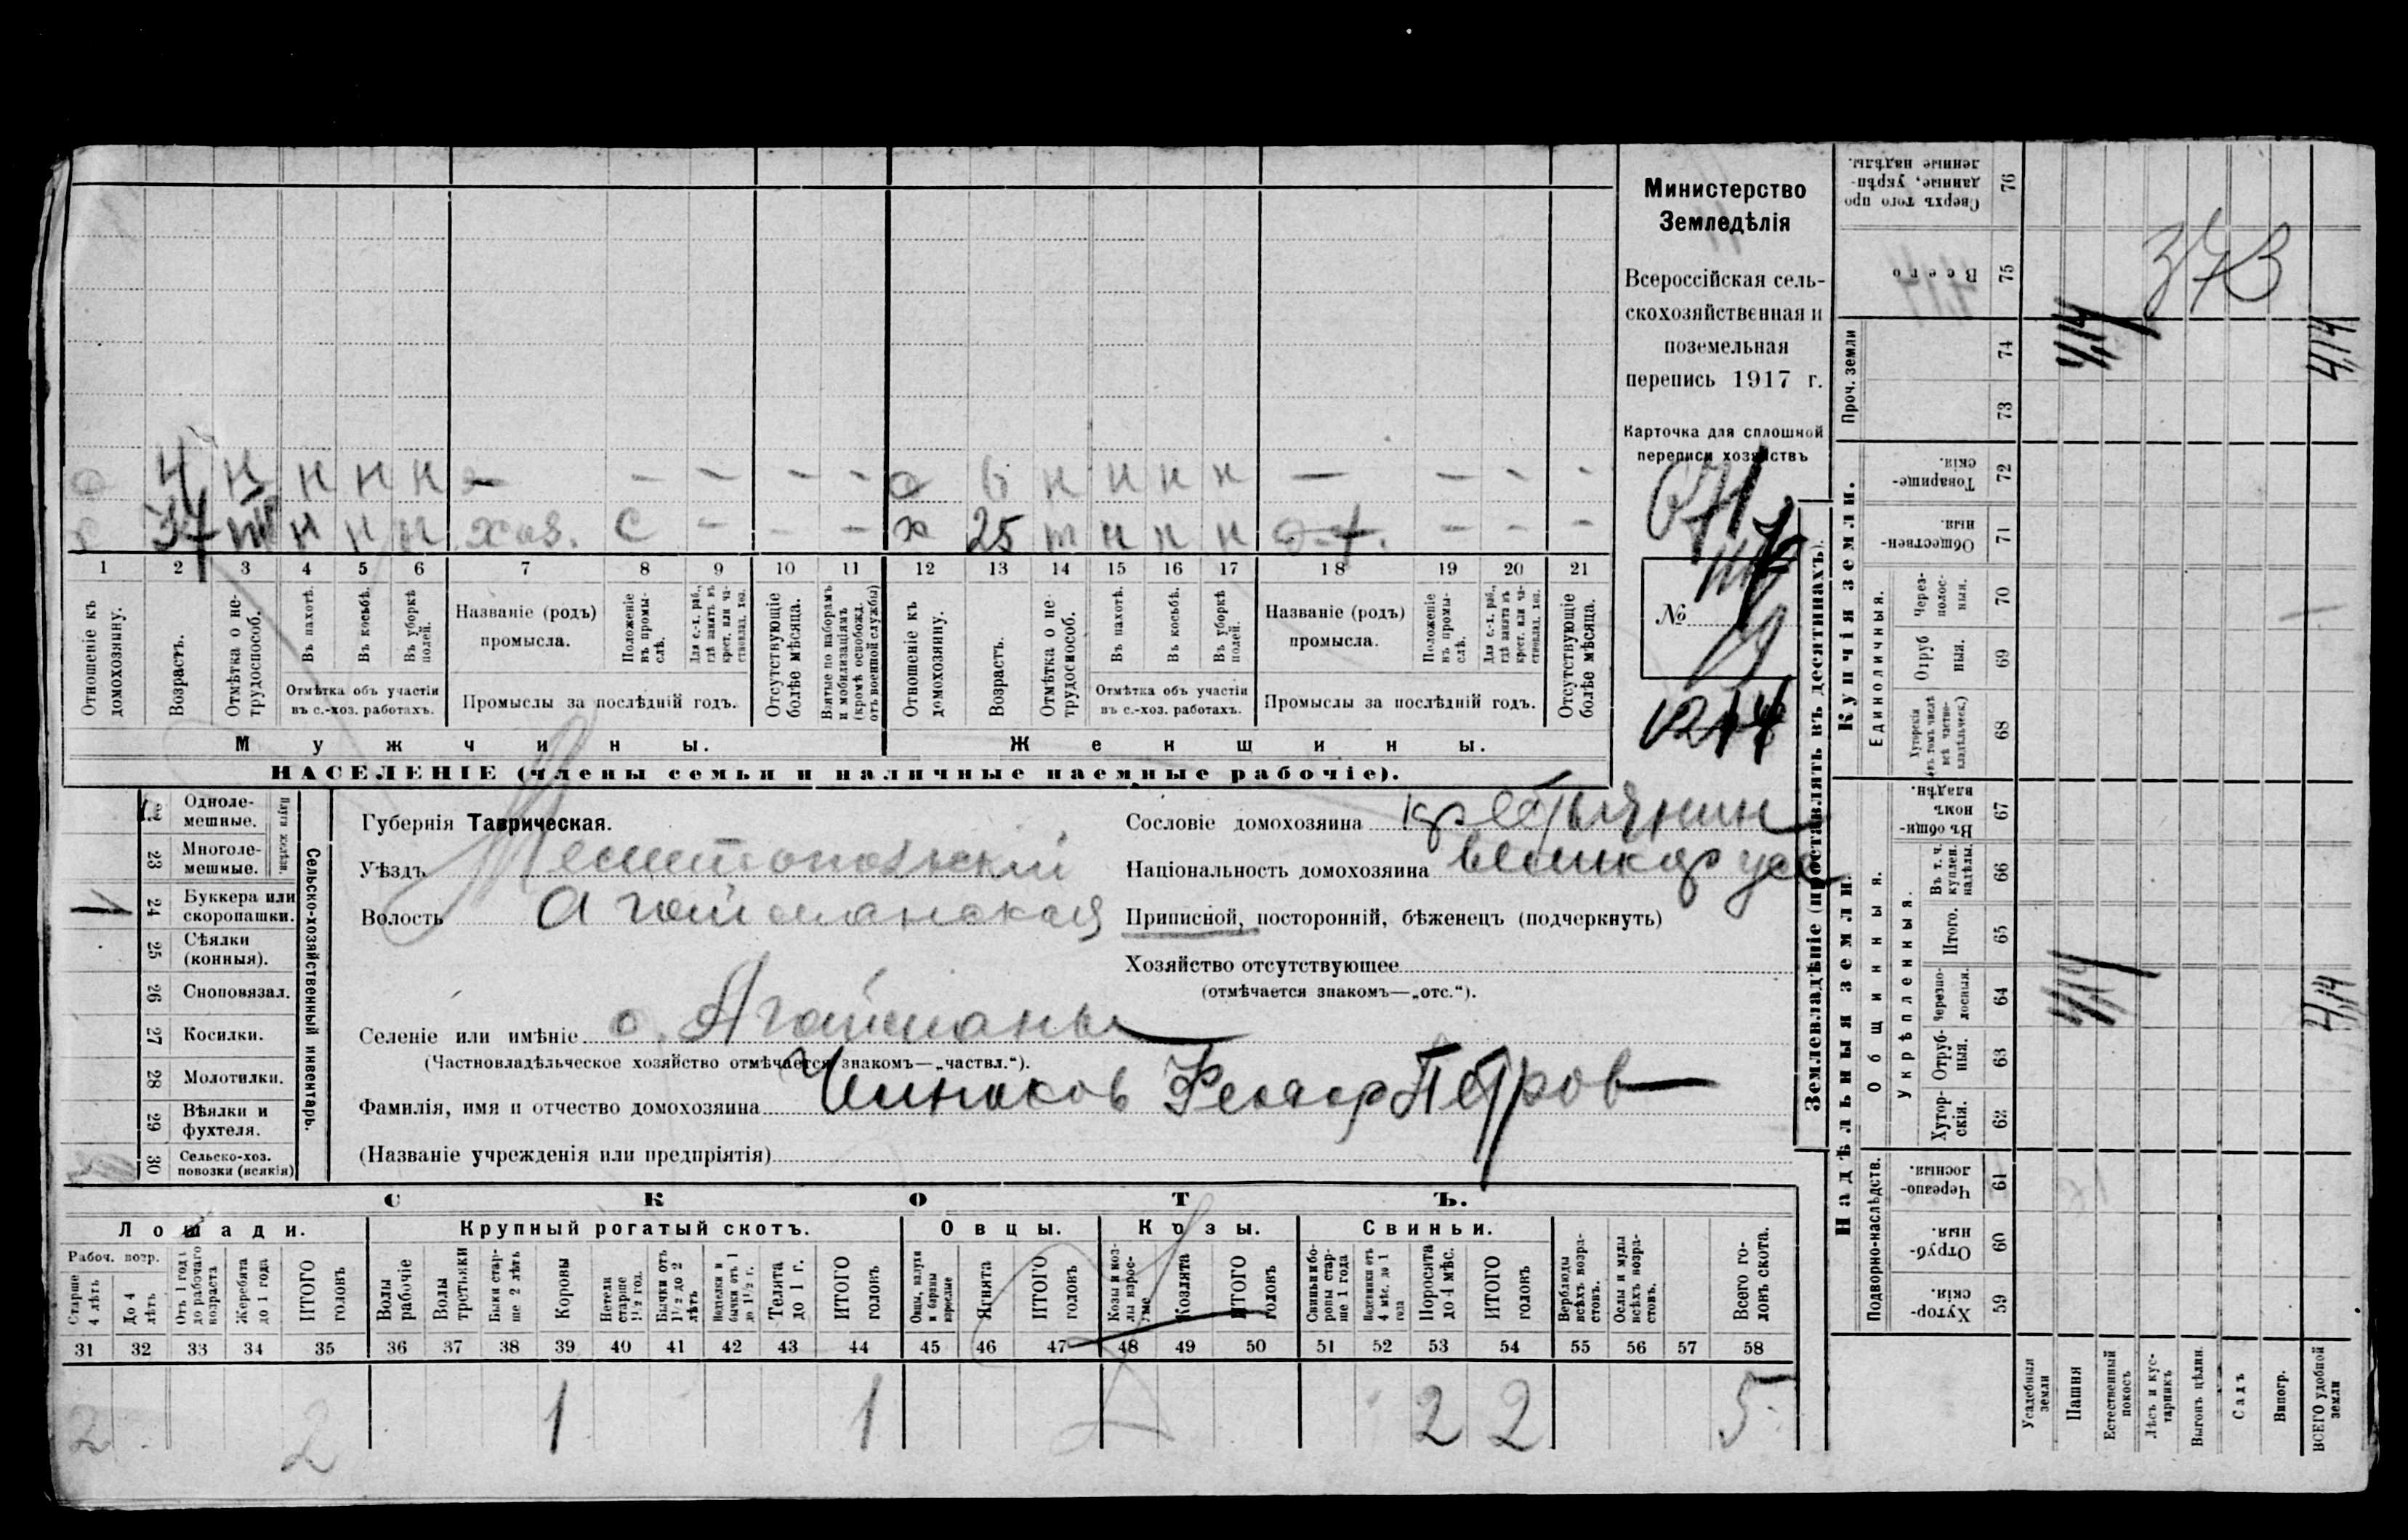 Министерство
Земледѣлія
Всероссійская сель-
скохозяйственная и
поземельная
перепись 1917 г.
Карточка для сплошной
переписи хозяйствъ
671
№
о 4 н н н н — — — — — о 6 н н н н — — — —
37 т н н н хоз. С — — — х 25 т н н н — — —
1 2 3 4 5 6 7 8 9 10 11 12 13 14 15 16 17 18 19 20 21
Отношеніе къ домохозяину.
Возрастъ.
Отмѣтка о не-трудоспособ.
Въ пахотѣ.
Въ косьбѣ.
Въ уборкѣ полей.
Отмѣтка объ участіи въ с.-хоз. работахъ.
Названіе (родъ) промысла.
Положеніе въ промы-слѣ.
Для с.-х. раб., гдѣ занятъ въ крест. или ча-стновлад. хоз.
Промыслы за послѣдній годъ.
Отсутствующіе болѣе мѣсяца.
Взятые по наборамъ и мобилизаціямъ (кромѣ освобожд. отъ военной службы)
Отношеніе къ домохозяину.
Возрастъ.
Отмѣтка о не-трудоспособ.
Въ пахотѣ.
Въ косьбѣ.
Въ уборкѣ полей.
Отмѣтка объ участіи въ с.-хоз. работахъ.
Названіе (родъ) промысла.
Положеніе въ промы-слѣ.
Для с.-х. раб., гдѣ занятъ въ крест. или ча-стновлад. хоз.
Промыслы за послѣдній годъ.
Отсутствующіе болѣе мѣсяца.
Мужчины. Женщины.
НАСЕЛЕНІЕ (члены семьи и наличные наемные рабочіе).
Губернія Таврическая.
Уѣздъ Мелитопольский
Волость Агайманская
Селеніе или имѣніе с. Агайманы
(Частновладѣльческое хозяйство отмѣчается знакомъ—„частвл.“).
Фамилія, имя и отчество домохозяина Федор Петров
(Названіе учрежденія или предпріятія)
Сословіе домохозяина крестьянин
Національность домохозяина великорус
Приписной, посторонній, бѣженецъ (подчеркнуть)
Хозяйство отсутствующее
(отмѣчается знакомъ—„отс.“).
Сельско-хозяйственный инвентарь.
Одноле-мешные.
23 Многоле-мешные.
24 Буккера или скоропашки. 1
25 Сѣялки (конныя).
26 Сноповязал.
27 Косилки.
28 Молотилки.
29 Вѣялки и фухтеля.
30 Сельско-хоз. повозки (всякія)
СКОТЪ.
Лошади. Крупный рогатый скотъ. Овцы. Козы. Свиньи.
Рабоч. возр.
Старше 4 лѣтъ
До 4 лѣтъ
Отъ 1 года до рабочаго возраста
Жеребята до 1 года
ИТОГО головъ
Волы рабочіе
Волы третьяки
Быки стар-ше 2 лѣтъ
Коровы
Нетели старше 1½ год.
Бычки отъ 1½ до 2 лѣтъ
Нетелки и бычки отъ 1 до 1½ г.
Телята до 1 г.
ИТОГО головъ
Овцы, валухи и бараны взрослые
Ягнята
ИТОГО головъ
Козы и коз-лы взрос-лые
Козлята
ИТОГО головъ
Свиньи и бо-ровы стар-ше 1 года
Подсвинки отъ 4 мѣс. до 1 года
Поросята до 4 мѣс.
ИТОГО головъ
Верблюды всѣхъ возра-стовъ.
Ослы и мулы всѣхъ возра-стовъ.
Всего го-ловъ скота.
31 32 33 34 35 36 37 38 39 40 41 42 43 44 45 46 47 48 49 50 51 52 53 54 55 56 57 58
2 2 1 1 2 2 5
Землевладѣніе (проставлять въ десятинахъ).
Надѣльныя земли. Купчія земли. Проч. земли
Подворно-наслѣдств. Общинныя. Укрѣпленныя. Единоличныя.
59 Хутор-скія.
60 Отруб-ныя.
61 Черезпо-лосныя.
62 Хутор-скія.
63 Отруб-ныя.
64 Черезпо-лосныя.
65 Итого.
66 Въ т. ч. куплен. надѣлы.
67 Въ общи-номъ владѣн.
68 Хуторскія (въ томъ числѣ всѣ частно-владѣльческ.)
69 Отруб ныя.
70 Через-полос-ныя.
71 Обществен-ныя.
72 Товарище-скія.
73
74
75 Всего
76 Сверхъ того про данные, укрѣп-ленные надѣлы.
Усадебныя земли
Пашня
Естественный покосъ
Лѣсъ и кус-тарникъ
Выгонъ цѣлин.
Садъ
Виногр.
ВСЕГО удобной земли
4,14 4,14
4,14 4,14